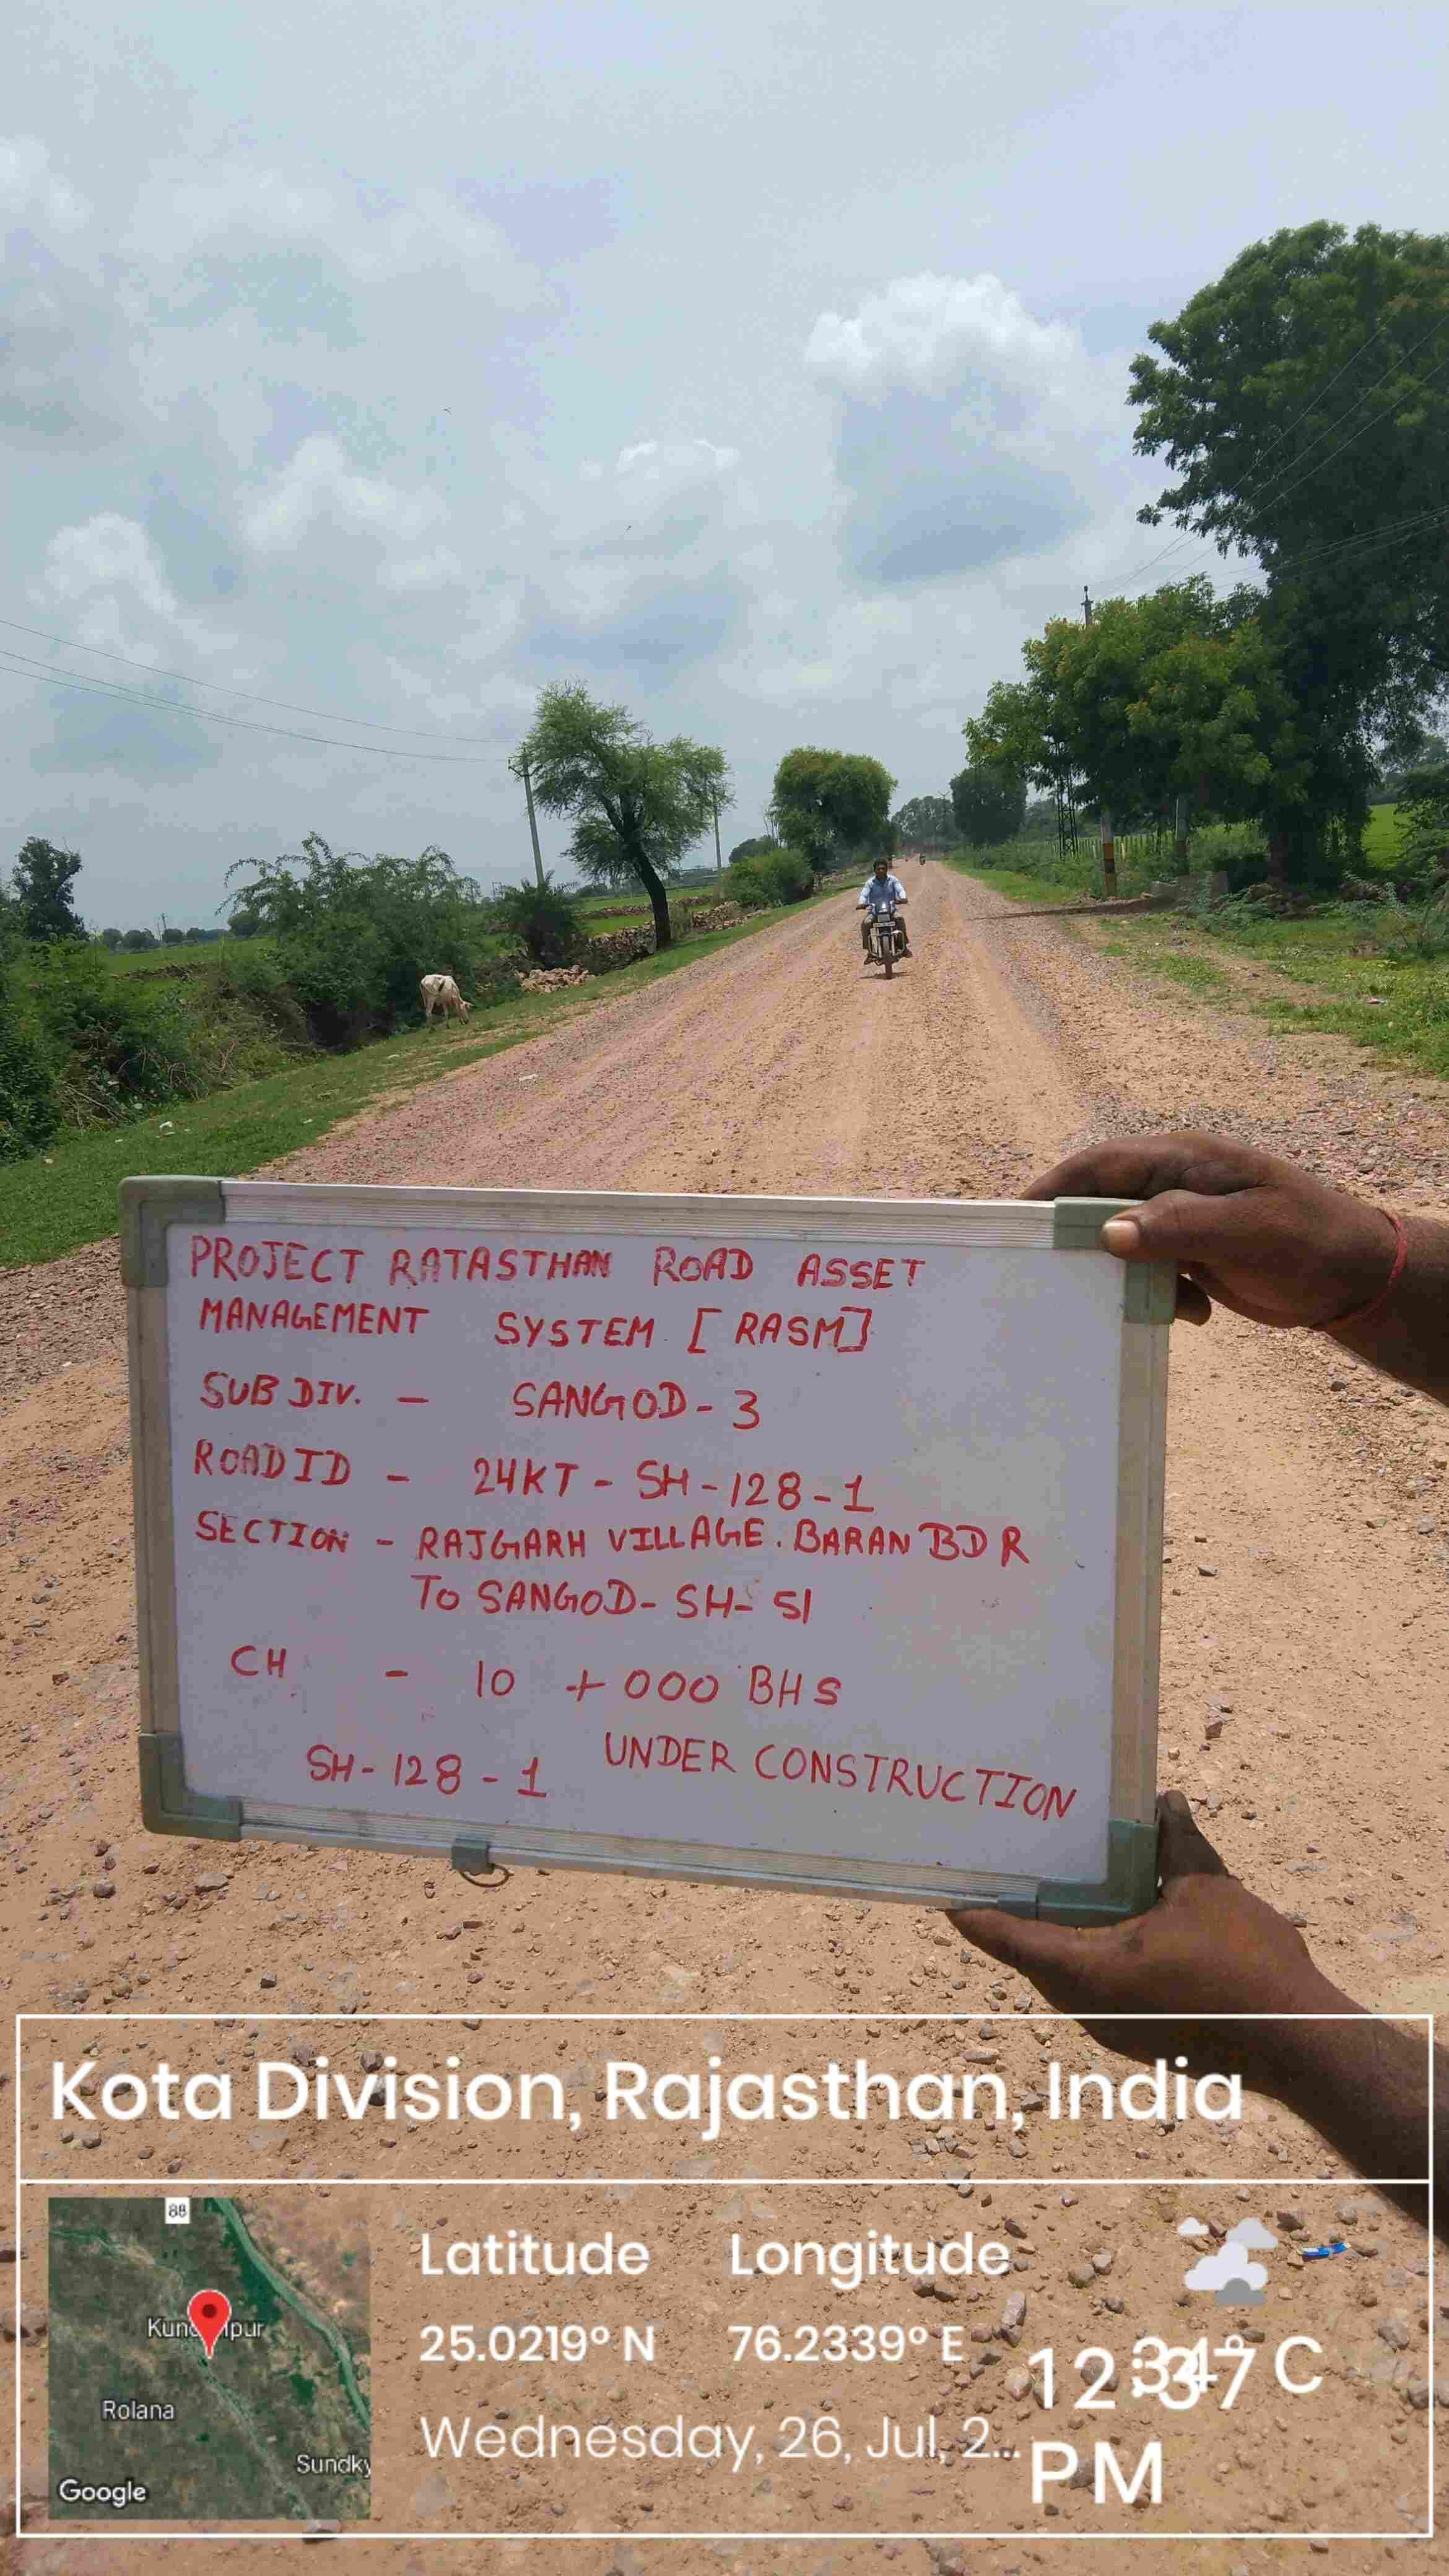 PROJECT RATASTHAN ROAD ASSET
MANAGEMENT SYSTEM [RASM]
SUB DIV. - SANGOD-3
ROAD ID - 24KT-SH-128-1
SECTION - RAJGARH VILLAGE. BARAN BDR
TO SANGOD-SH-51
CH - 10 +000 BHS
SH-128-1 UNDER CONSTRUCTION
Kota Division, Rajasthan, India
88
Rolana
Google
Latitude Longitude
25.0219° N 76.2339° E
Wednesday, 26, Jul, 2...
PM